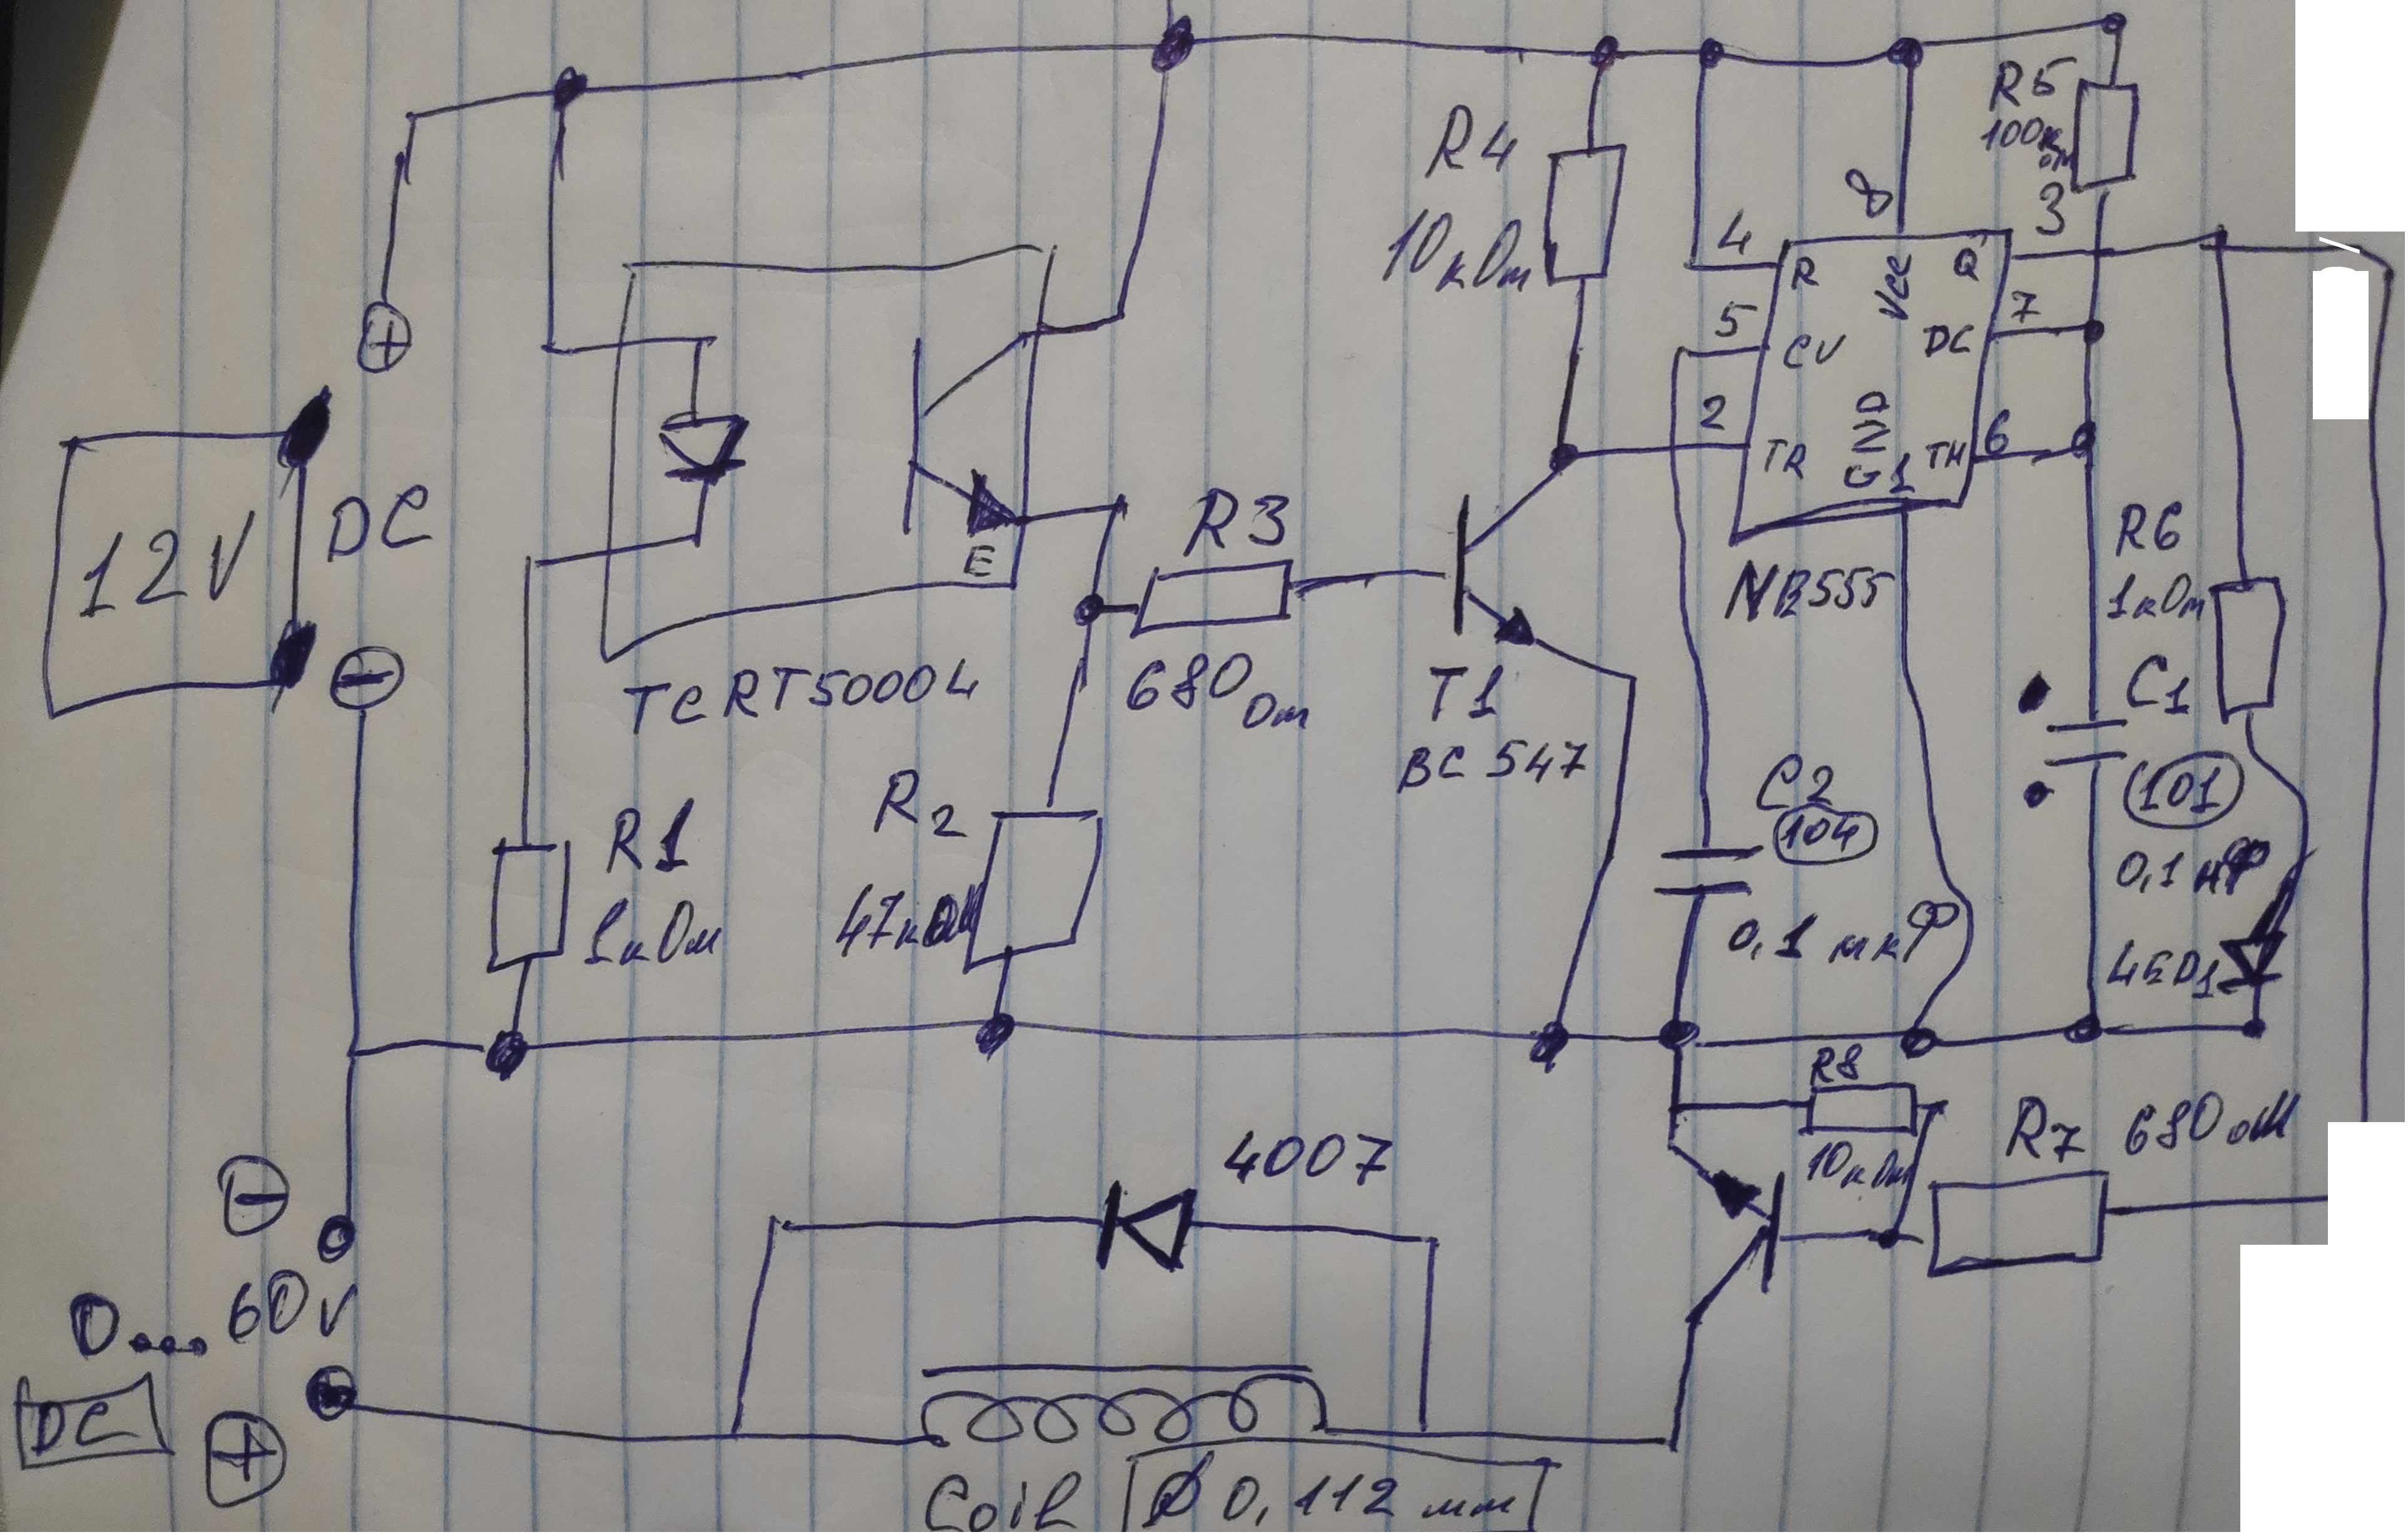 R5
100кОм
R4
10кОм
8
3
4
R
Vcc
Q
5
7
CV
DC
2
GND
6
TR
1
TH
NE555
+
12V
DC
−
E
TCRT5000L
R3
680 Ом
T1
BC 547
R6
1кОм
C1
101
C2
104
0,1 мкФ
R1
1кОм
R2
47кОм
LED1
R8
10кОм
R7 680 оМ
4007
−
0....60V
DC
+
Coil Ø 0,112 мм